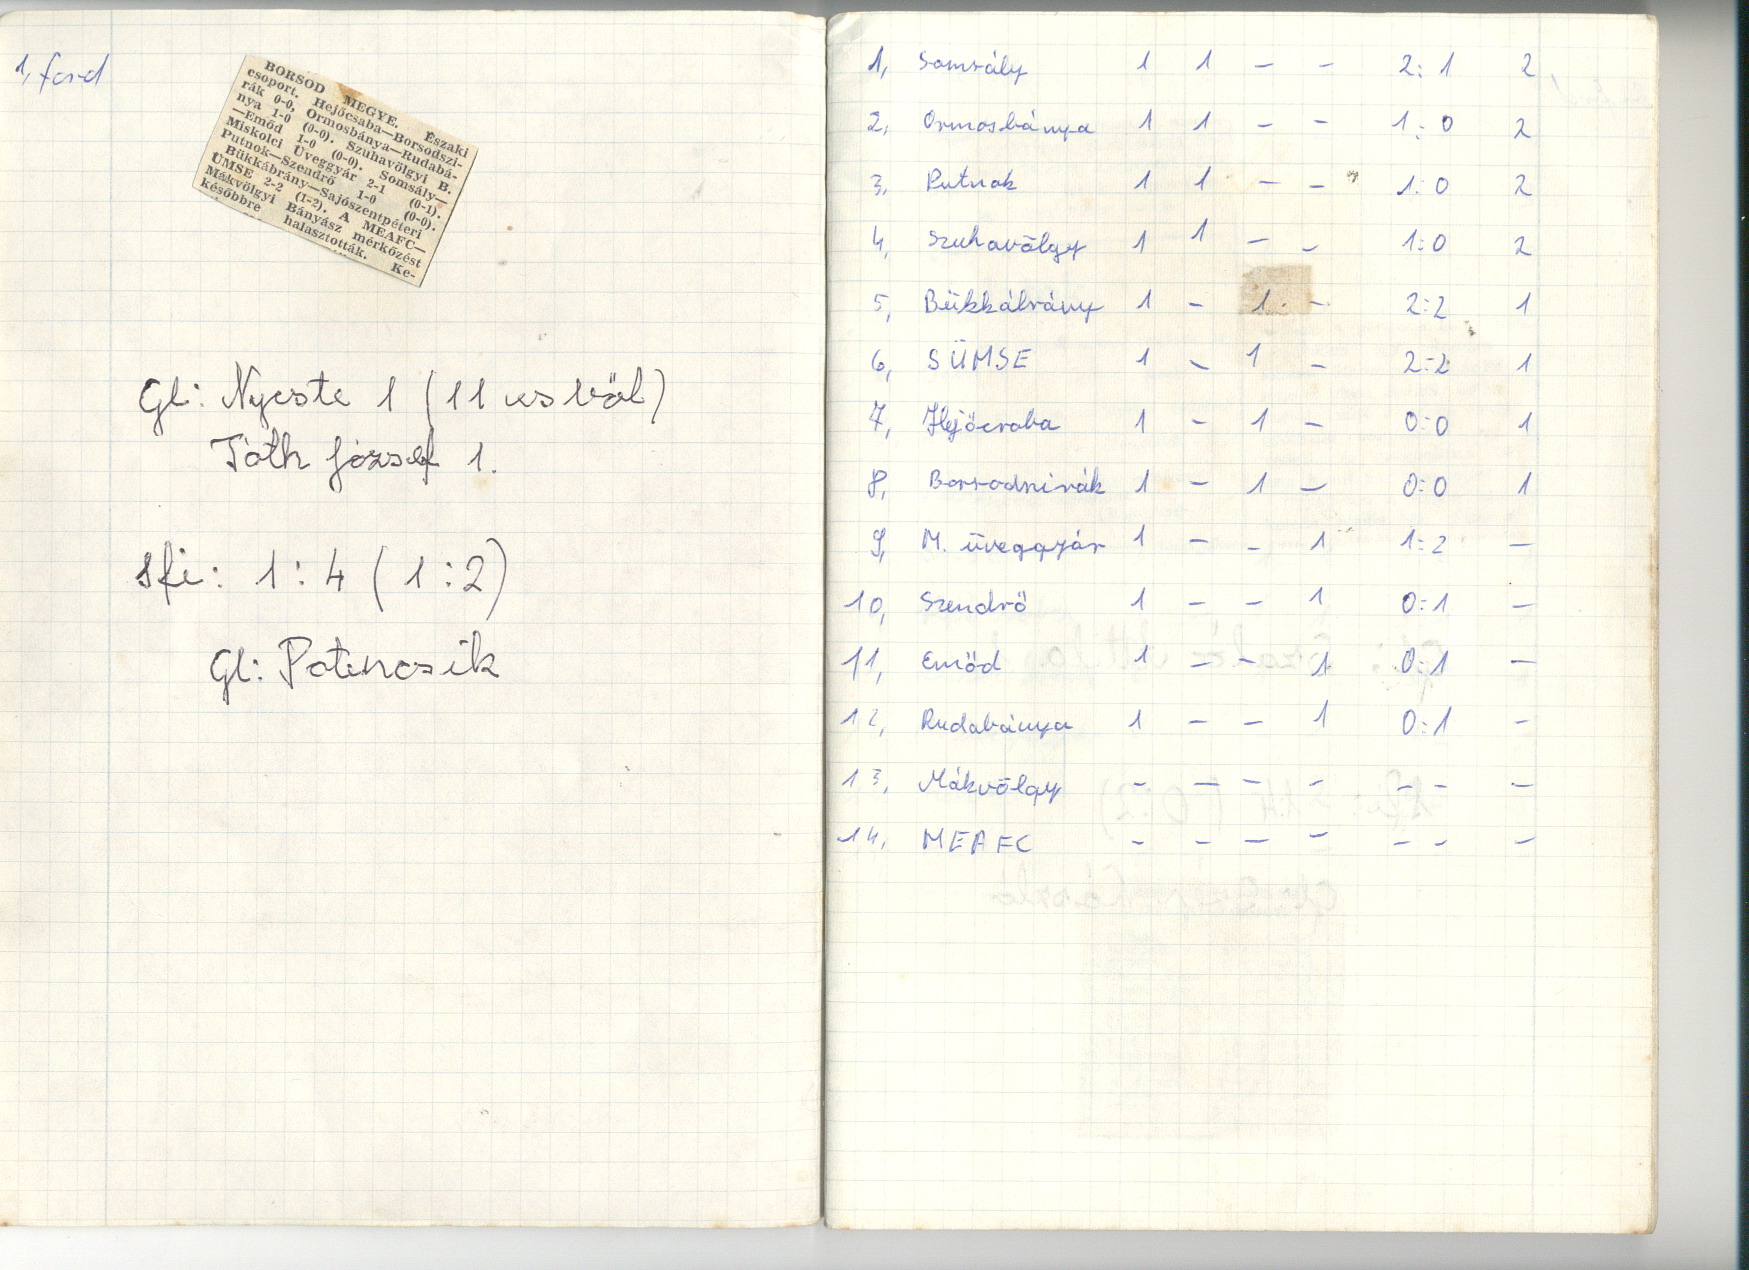 1, ford
BORSOD MEGYE. Északi
csoport. Hejőcsaba—Borsodszi-
rák 0-0, Ormosbánya—Rudabá-
nya 1-0 (0-0). Szuhavölgyi B.
—Emőd 1-0 (0-0). Somsály—
Miskolci Üveggyár 2-1 (0-1).
Putnok—Szendrő 1-0 (0-0).
Bükkábrány—Sajószentpéteri
ÜMSE 2-2 (1-2). A MEAFC—
Mákvölgyi Bányász mérkőzést
későbbre halasztották. Ke-
Gl: Nyeste 1 (11 esből)
Tóth József 1.
Ifi: 1:4 (1:2)
Gl: Potencsik
1, Somsály 1 1 – – 2:1 2
2, Ormosbánya 1 1 – – 1:0 2
3, Putnok 1 1 – – 1:0 2
4, Szuhavölgy 1 1 – – 1:0 2
5, Bükkábrány 1 – 1 – 2:2 1
6, SÜMSE 1 – 1 – 2:2 1
7, Hejőcsaba 1 – 1 – 0:0 1
8, Borsodszirák 1 – 1 – 0:0 1
9, M. üveggyár 1 – – 1 1:2 –
10, Szendrő 1 – – 1 0:1 –
11, Emőd 1 – – 1 0:1 –
12, Rudabánya 1 – – 1 0:1 –
13, Mákvölgy – – – – – – –
14, MEAFC – – – – – – –